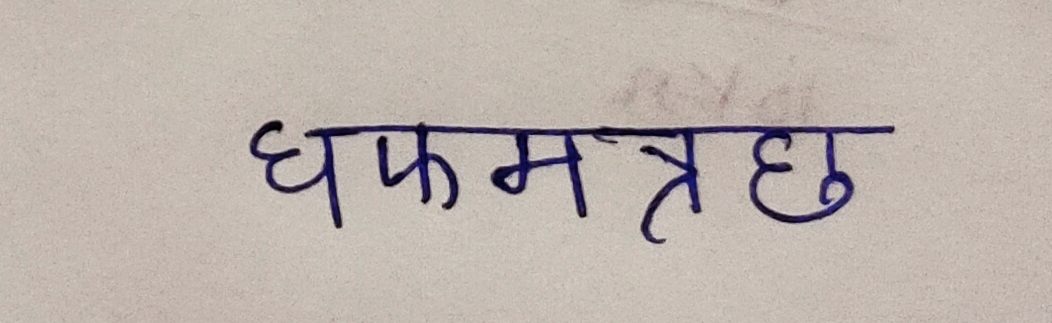 धफमत्रछ